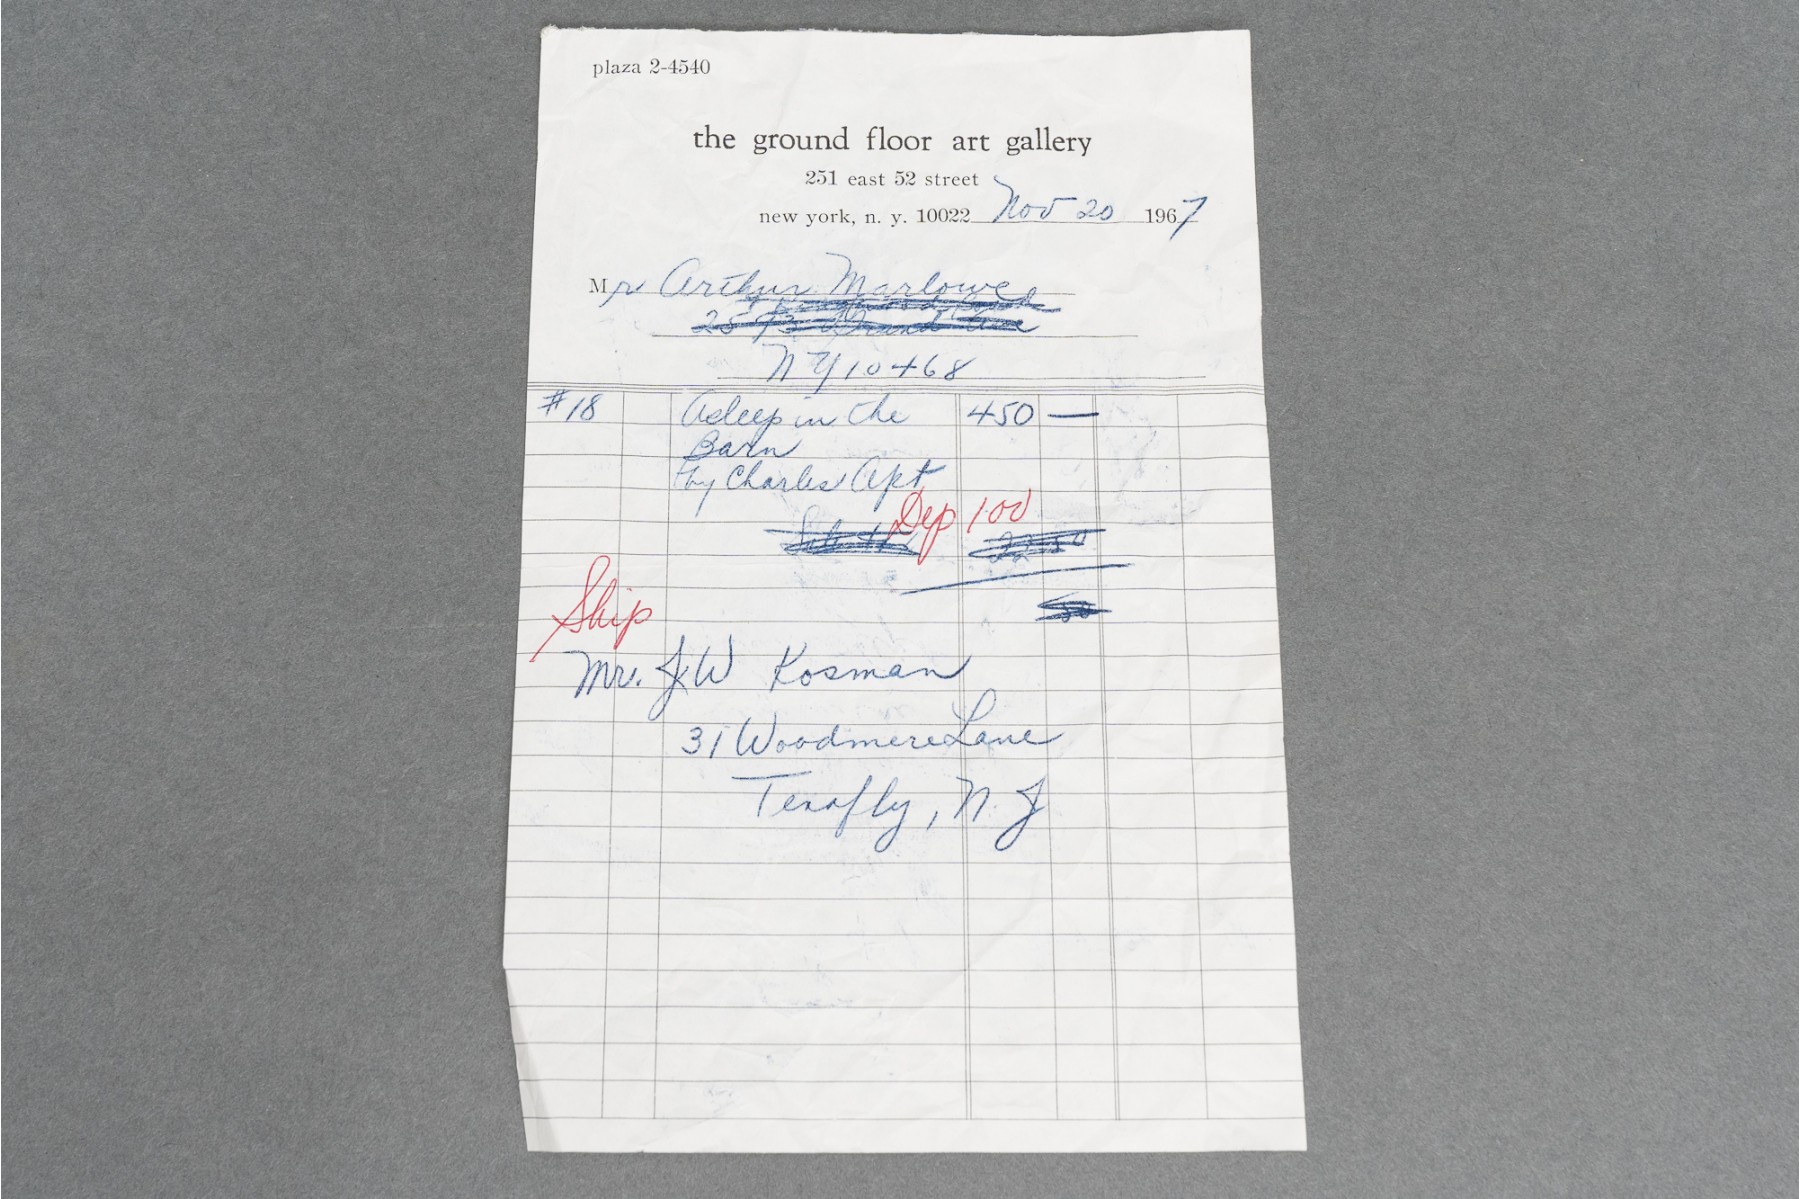 plaza 2-4540
the ground floor art gallery
251 east 52 street
new york, n. y. 10022 Nov 20 1967
Mr Arthur Marlowe
2593 Grand Ave
NY 10468
#18 Asleep in the 450 —
Barn
by Charles Apt
Dep 100
Ship
Mr. J W Kosman
31 Woodmere Lane
Tenafly, N. J